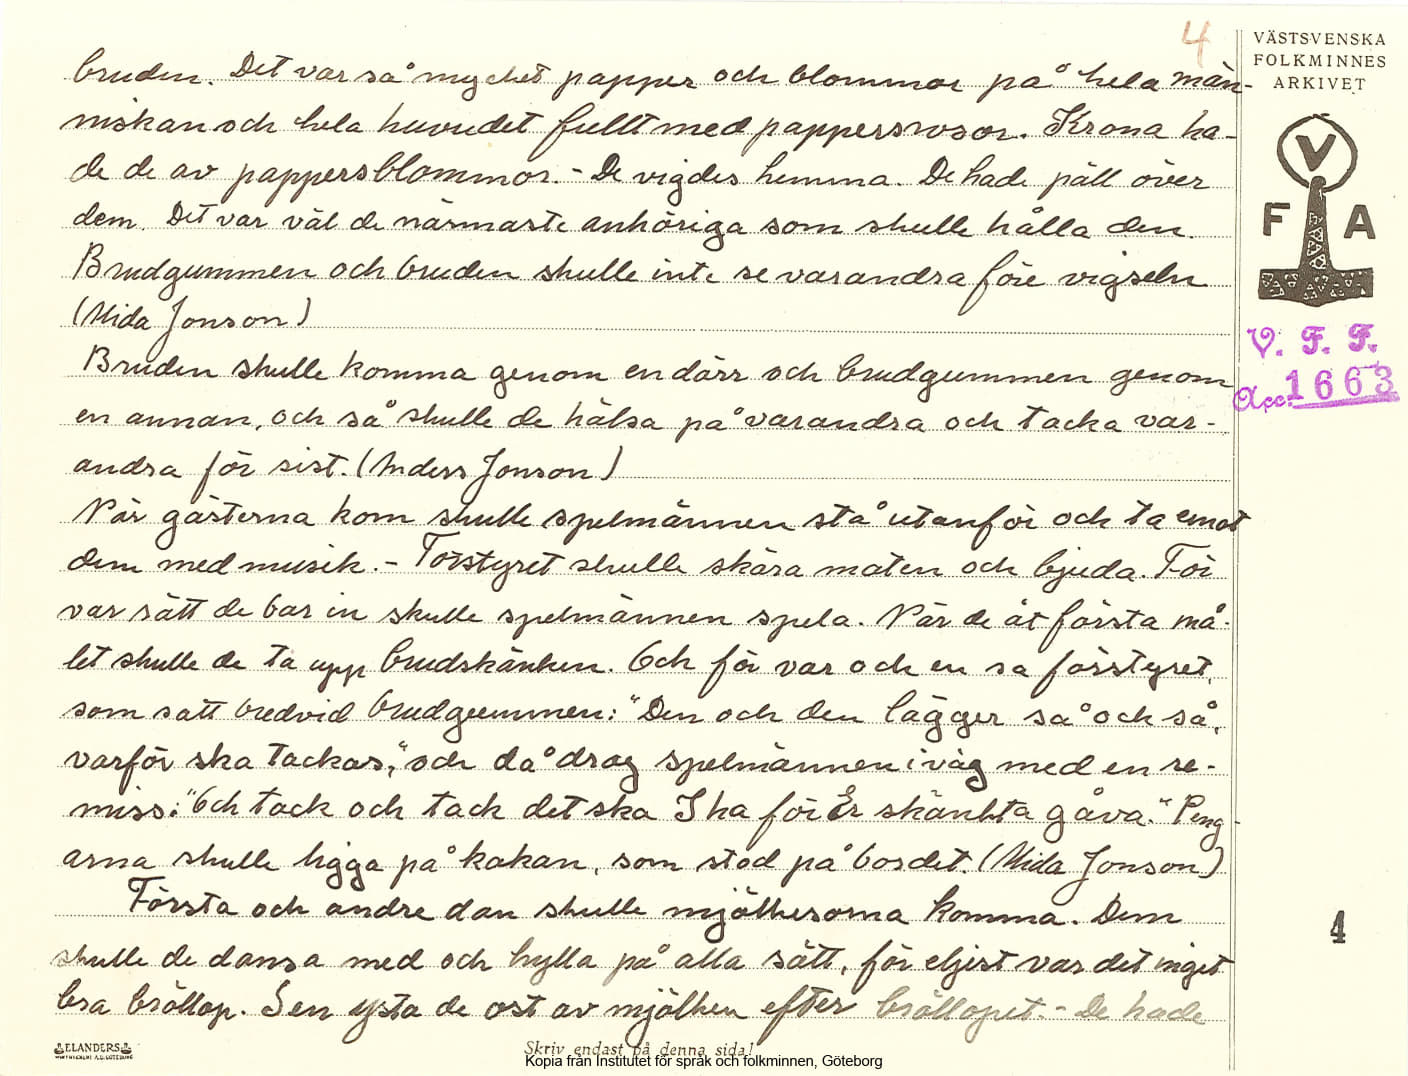 4
VÄSTSVENSKA
FOLKMINNES
ARKIVET
V
F A
V. F. F.
Acc. 1663
bruden. Det var så mycket papper och blommor på hela män-
niskan och hela huvudet fullt med pappersrosor. Krona ha-
de de av pappersblommor. - De vigdes hemma. De hade päll över
dem. Det var väl de närmaste anhöriga som skulle hålla den.
Brudgummen och bruden skulle inte se varandra före vigseln
(Mida Jonson)
Bruden skulle komma genom en dörr och brudgummen genom
en annan, och så skulle de hälsa på varandra och tacka var-
andra för sist. (Anders Jonson)
När gästerna kom skulle spelmännen stå utanför och ta emot
dem med musik. - Förstyret skulle skära maten och bjuda. För
var rätt de bar in skulle spelmännen spela. När de åt första må-
let skulle de ta upp brudskänken. Och för var och en sa förstyret,
som satt bredvid brudgummen: "Den och den lägger så och så,
varför ska tackas," och då drog spelmännen iväg med en re-
miss: "Och tack och tack det ska I ha för Er skänkta gåva." Peng-
arna skulle ligga på kakan, som stod på bordet. (Mida Jonson)
Första och andre dan skulle mjölkersorna komma. Dem
skulle de dansa med och hylla på alla sätt, för eljest var det inget
bra bröllop. Sen ysta de ost av mjölken efter bröllopet. - De hade
4
ELANDERS
Skriv endast på denna sida!
Kopia från Institutet för språk och folkminnen, Göteborg